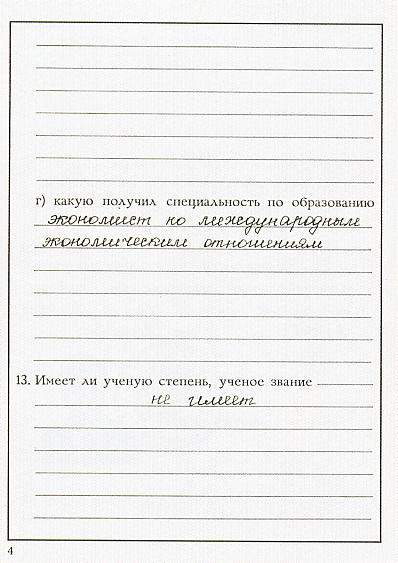 г) какую получил специальность по образованию
экономист по международным
экономическим отношениям
13. Имеет ли ученую степень, ученое звание
не имеет
4